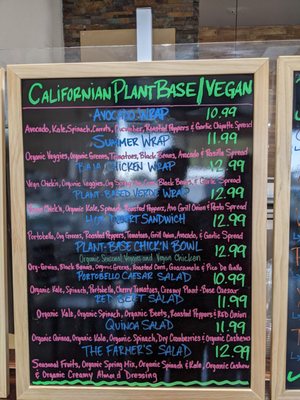 Californian Plant Base/Vegan
Avocado Wrap 10.99
Avocado, Kale, Spinach, Carrots, Cucumber, Roasted Peppers & Garlic Chipotle Spread
Summer Wrap 11.99
Organic Veggies, Organic Greens, Tomatoes, Black Beans, Avocado & Spread
Chicken Wrap 11.99
Vegan Chick'n, Organic Veggies, Org Spring Black Beans & Garlic Spread
Plant Based Verde Wrap 12.99
Chick'n, Organic Kale, Spinach, Roasted Peppers, Onion & Pesto Spread
Sandwich 12.99
Portobello, Org Greens, Roasted Peppers, Tomatoes, Grill Onion, Avocado, & Garlic Spread
Plant-Base Chick'n Bowl
Organic Seasonal Veggies and Vegan Chicken 12.99
Org-Quinoa, Black Beans, Organic Greens, Roasted Corn, Guacamole & Pico De Gallo
Portobello Caesar Salad 10.99
Organic Kale, Spinach, Portobello, Cherry Tomatoes, Creamy Plant-Base Caesar
Red Beet Salad 11.99
Organic Kale, Organic Spinach, Organic Beets, Roasted Peppers & Red Onion
Quinoa Salad 11.99
Organic Quinoa, Organic Kale, Organic Spinach, Dry Cranberries & Organic Cashews
The Farmer's Salad 12.99
Seasonal Fruits, Organic Spring Mix, Organic Spinach & Kale, Organic Cashew
& Organic Creamy Almond Dressing